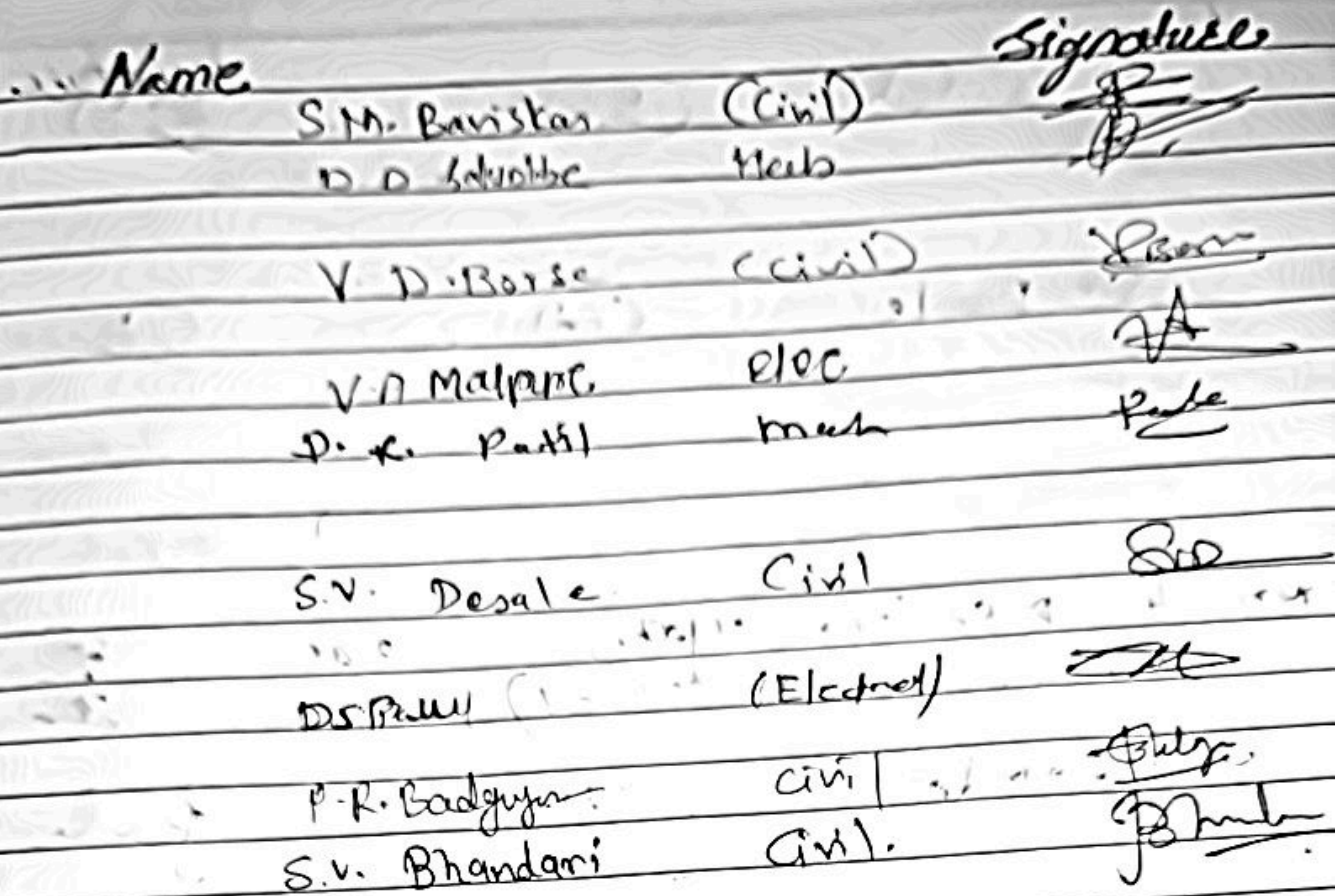 Name Signature
S.M. Baviskar (Civil)
D D Mech
V. D. Borse (Civil)
V.A Malpure elec
D. R. Patil mech
S.V. Desale Civil
D S (Electrical)
P.R. Badgujar Civil
S.V. Bhandari Civil.